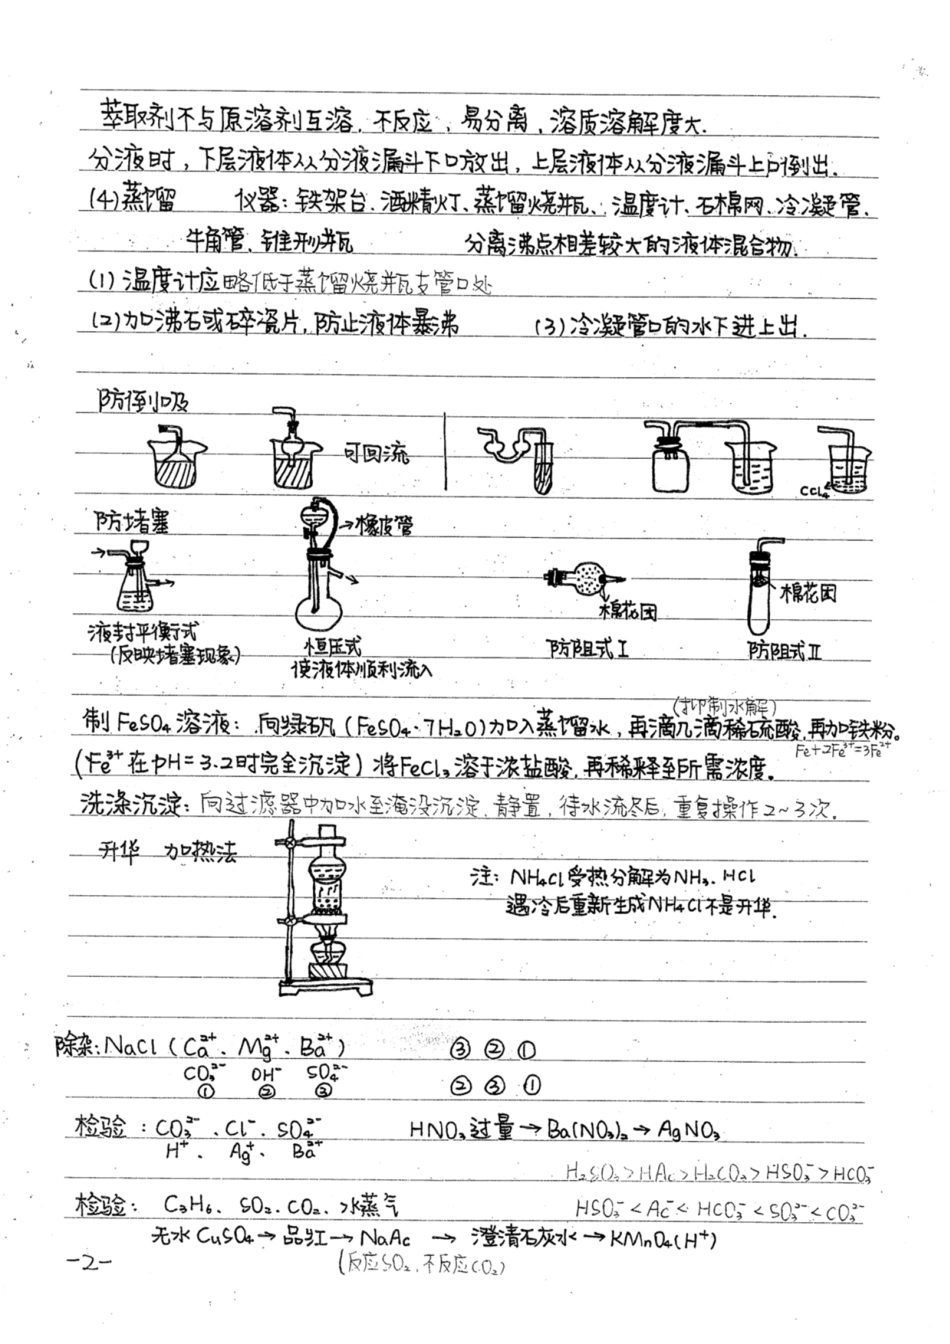 萃取剂不与原溶剂互溶、不反应、易分离、溶质溶解度大.
分液时,下层液体从分液漏斗下口放出,上层液体从分液漏斗上口倒出.
(4)蒸馏 仪器:铁架台、酒精灯、蒸馏烧瓶、温度计、石棉网、冷凝管、
牛角管、锥形瓶 分离沸点相差较大的液体混合物.
(1)温度计应略低于蒸馏烧瓶支管口处
(2)加沸石或碎瓷片,防止液体暴沸 (3)冷凝管口的水下进上出.
防倒吸
可回流
CCl₄
防堵塞
橡皮管
棉花团
棉花团
液封平衡式
(反映堵塞现象)
恒压式
使液体顺利流入
防阻式Ⅰ
防阻式Ⅱ
(抑制水解)
制FeSO₄溶液:向绿矾(FeSO₄·7H₂O)加入蒸馏水,再滴几滴稀硫酸,再加铁粉。
Fe+2Fe³⁺=3Fe²⁺
(Fe³⁺在pH=3.2时完全沉淀)将FeCl₃溶于浓盐酸,再稀释至所需浓度。
洗涤沉淀:向过滤器中加水至淹没沉淀、静置,待水流尽后,重复操作2~3次.
升华 加热法
注:NH₄Cl受热分解为NH₃、HCl
遇冷后重新生成NH₄Cl不是升华.
除杂:NaCl(Ca²⁺、Mg²⁺、Ba²⁺) ③②①
CO₃²⁻ OH⁻ SO₄²⁻
① ② ③ ②③①
检验:CO₃²⁻、Cl⁻、SO₄²⁻ HNO₃过量→Ba(NO₃)₂→AgNO₃
H⁺、Ag⁺、Ba²⁺
H₂SO₃>HAc>H₂CO₃>HSO₃⁻>HCO₃⁻
检验:C₃H₆、SO₂、CO₂、水蒸气 HSO₃⁻<Ac⁻<HCO₃⁻<SO₃²⁻<CO₃²⁻
无水CuSO₄→品红→NaAc→澄清石灰水→KMnO₄(H⁺)
(反应SO₂、不反应CO₂)
-2-